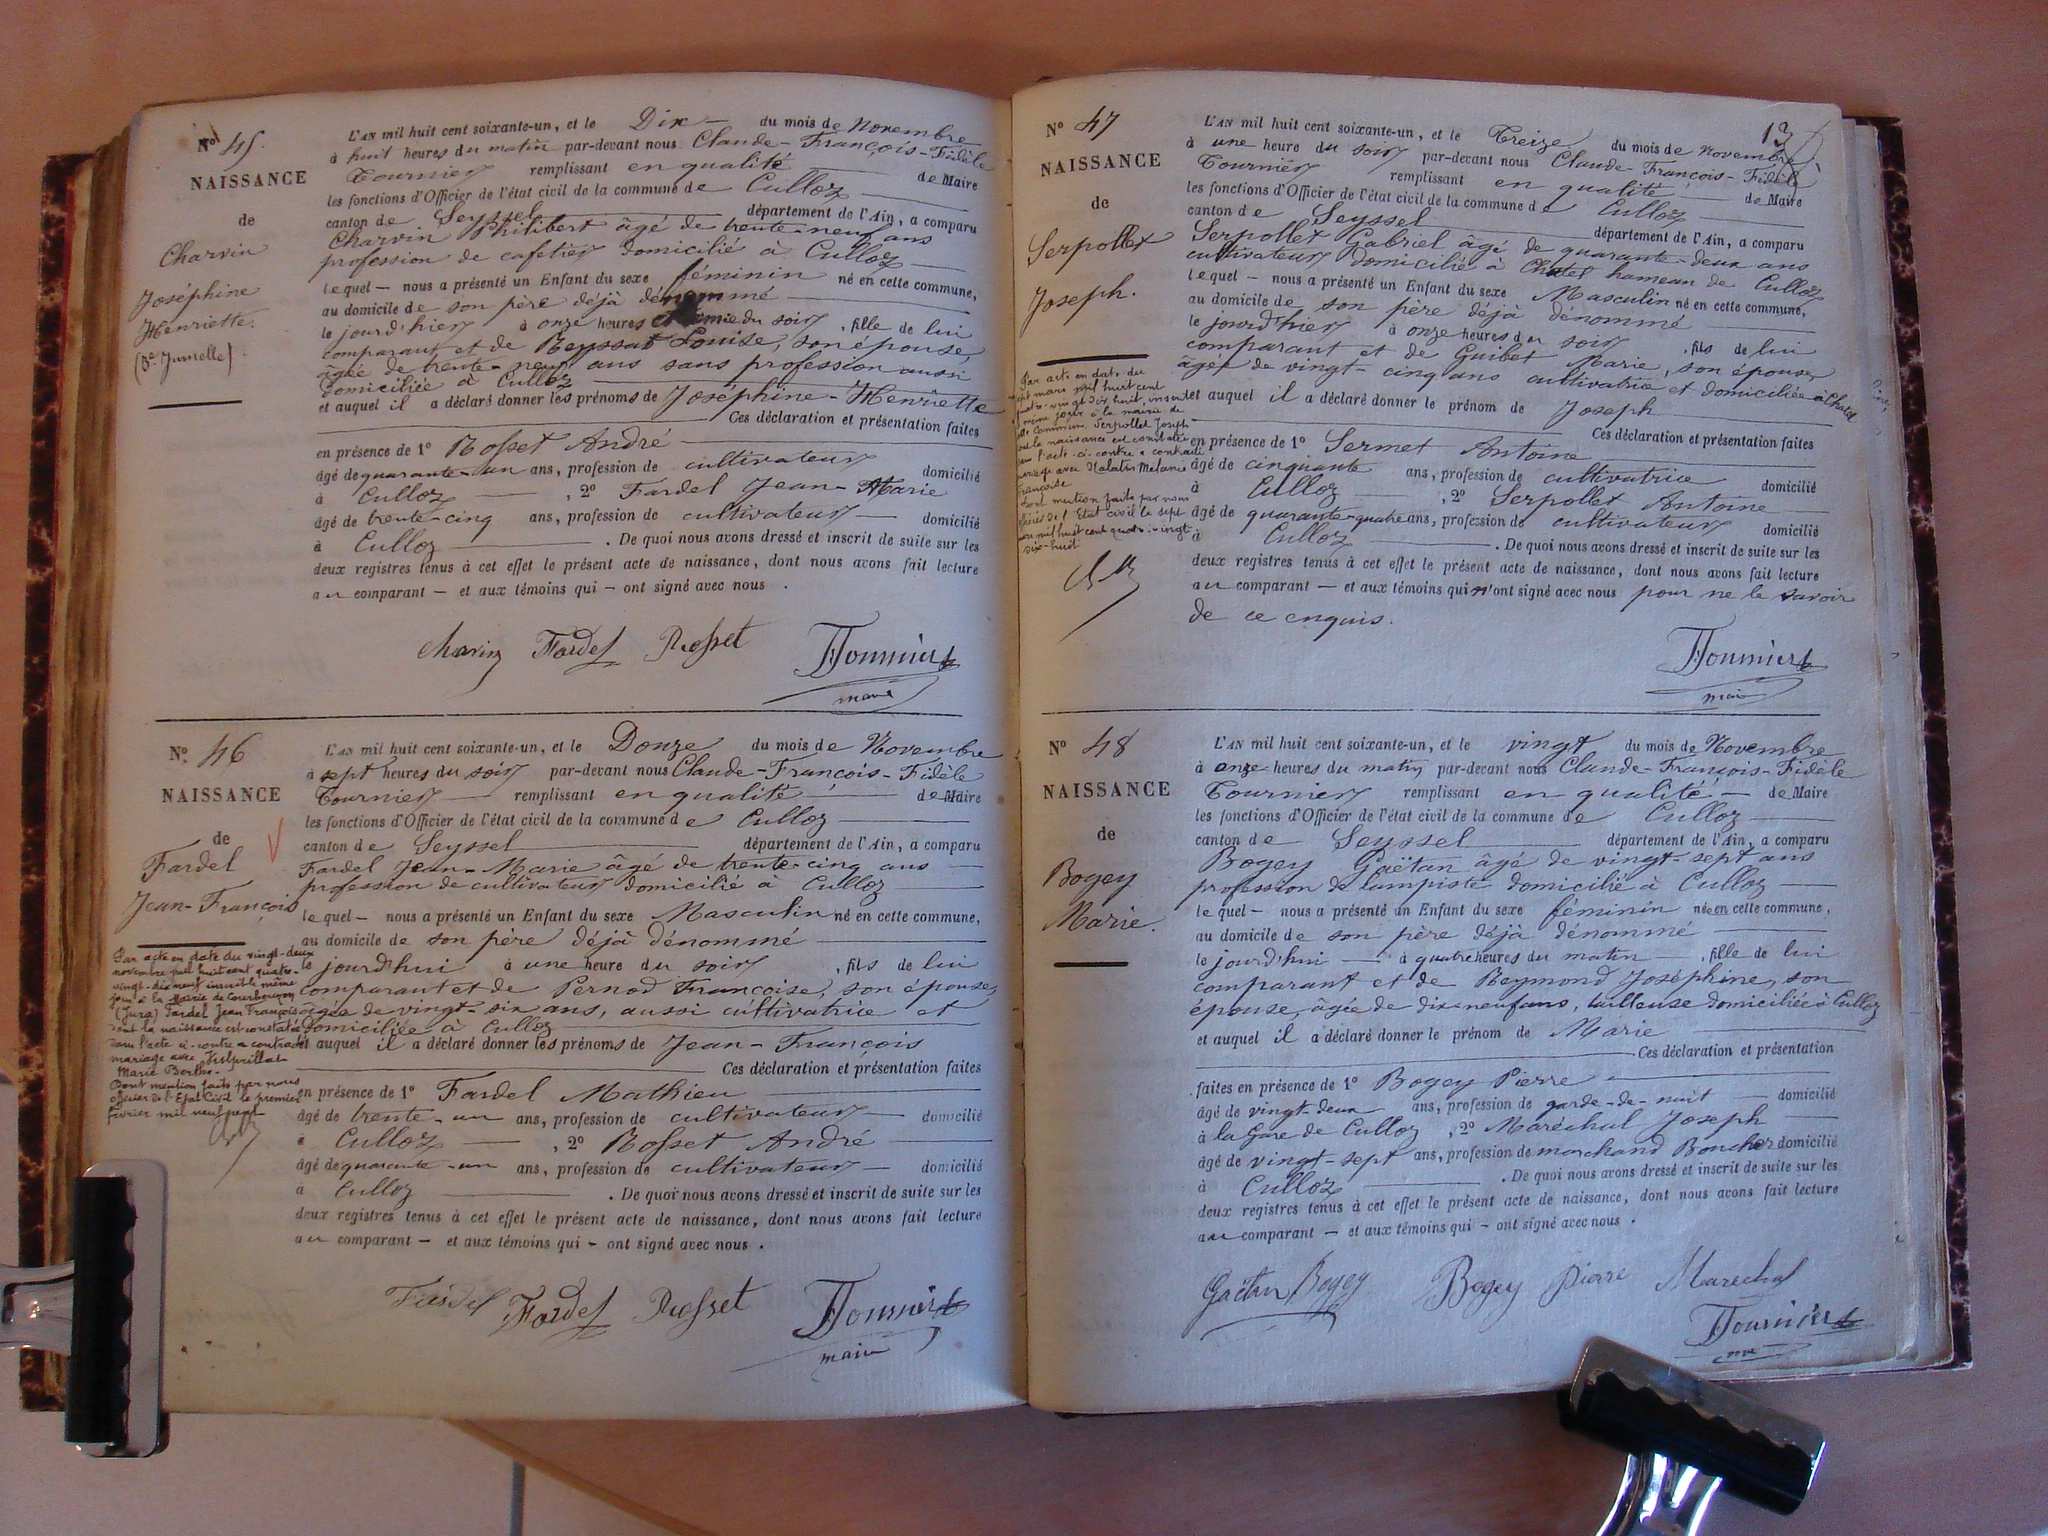 No 45.
NAISSANCE
de
Charvin
Joséphine
Henriette.
(2e Jumelle).
L'AN mil huit cent soixante-un, et le Dix du mois de Novembre
à huit heures du matin par-devant nous Claude-François-Fidèle
Tournier remplissant en qualité de Maire
les fonctions d'Officier de l'état civil de la commune de Culloz
canton de Seyssel département de l'Ain, a comparu
Charvin Philibert âgé de trente-neuf ans
profession de cafetier domicilié à Culloz
lequel nous a présenté un Enfant du sexe féminin né en cette commune,
au domicile de son père déjà dénommé
le jourd'hier à onze heures et demie du soir, fille de lui
comparant et de Reyssat Louise, son épouse,
âgée de trente-neuf ans sans profession aussi
domiciliée à Culloz
et auquel il a déclaré donner les prénoms de Joséphine-Henriette
Ces déclaration et présentation faites
en présence de 1° Rosset André
âgé de quarante-un ans, profession de cultivateur domicilié
à Culloz, 2° Fardel Jean-Marie
âgé de trente-cinq ans, profession de cultivateur domicilié
à Culloz. De quoi nous avons dressé et inscrit de suite sur les
deux registres tenus à cet effet le présent acte de naissance, dont nous avons fait lecture
au comparant et aux témoins qui ont signé avec nous.
Charvin Fardel Rosset Tournier
maire
No 46
NAISSANCE
de
Fardel
Jean-François
Par acte en date du vingt-deux
novembre mil huit cent quatre-
vingt-dix neuf inscrit le même
jour à la Mairie de Courbouzon
(Jura) Fardel Jean François
dont la naissance est constatée
dans l'acte ci-contre a contracté
mariage avec
Marie Berthe.
Dont mention faite par nous
officier de l'Etat Civil le premier
février mil neuf cent
L'AN mil huit cent soixante-un, et le Douze du mois de Novembre
à sept heures du soir par-devant nous Claude-François-Fidèle
Tournier remplissant en qualité de Maire
les fonctions d'Officier de l'état civil de la commune de Culloz
canton de Seyssel département de l'Ain, a comparu
Fardel Jean-Marie âgé de trente-cinq ans
profession de cultivateur domicilié à Culloz
lequel nous a présenté un Enfant du sexe Masculin né en cette commune,
au domicile de son père déjà dénommé
le jourd'hui à une heure du soir, fils de lui
comparant et de Pernod Françoise, son épouse,
âgée de vingt-six ans, aussi cultivatrice et
domiciliée à Culloz
et auquel il a déclaré donner les prénoms de Jean-François
Ces déclaration et présentation faites
en présence de 1° Fardel Mathieu
âgé de trente-un ans, profession de cultivateur domicilié
à Culloz, 2° Rosset André
âgé de quarante-un ans, profession de cultivateur domicilié
à Culloz. De quoi nous avons dressé et inscrit de suite sur les
deux registres tenus à cet effet le présent acte de naissance, dont nous avons fait lecture
au comparant et aux témoins qui ont signé avec nous.
Fardel Fardel Rosset Tournier
maire
13
No 47
NAISSANCE
de
Serpollet
Joseph.
Par acte en date du
sept mars mil huit cent
quatre-vingt dix huit, inscrit
le même jour à la mairie de
cette commune, Serpollet Joseph
dont la naissance est constatée
dans l'acte ci-contre a contracté
mariage avec Mélanie
Françoise
Dont mention faite par nous
officier de l'Etat civil le sept
mars mil huit cent quatre-vingt
dix-huit
L'AN mil huit cent soixante-un, et le Treize du mois de Novembre
à une heure du soir par-devant nous Claude-François-Fidèle
Tournier remplissant en qualité de Maire
les fonctions d'Officier de l'état civil de la commune de Culloz
canton de Seyssel département de l'Ain, a comparu
Serpollet Gabriel âgé de quarante-deux ans
cultivateur domicilié à Chatel hameau de Culloz
lequel nous a présenté un Enfant du sexe Masculin né en cette commune,
au domicile de son père déjà dénommé
le jourd'hier à onze heures du soir, fils de lui
comparant et de Guibet Marie, son épouse,
âgée de vingt-cinq ans cultivatrice et domiciliée à Chatel
et auquel il a déclaré donner le prénom de Joseph
Ces déclaration et présentation faites
en présence de 1° Sermet Antoine
âgé de cinquante ans, profession de cultivatrice domicilié
à Culloz, 2° Serpollet Antoine
âgé de quarante-quatre ans, profession de cultivateur domicilié
à Culloz. De quoi nous avons dressé et inscrit de suite sur les
deux registres tenus à cet effet le présent acte de naissance, dont nous avons fait lecture
au comparant et aux témoins qui n'ont signé avec nous pour ne le savoir
de ce enquis.
Tournier
maire
No 48
NAISSANCE
de
Bogey
Marie.
L'AN mil huit cent soixante-un, et le vingt du mois de Novembre
à onze heures du matin par-devant nous Claude-François-Fidèle
Tournier remplissant en qualité de Maire
les fonctions d'Officier de l'état civil de la commune de Culloz
canton de Seyssel département de l'Ain, a comparu
Bogey Gaëtan âgé de vingt-sept ans
profession de lampiste domicilié à Culloz
lequel nous a présenté un Enfant du sexe féminin née en cette commune,
au domicile de son père déjà dénommé
le jourd'hui à quatre heures du matin, fille de lui
comparant et de Reymond Joséphine, son
épouse, âgée de dix-neuf ans, tailleuse domiciliée à Culloz
et auquel il a déclaré donner le prénom de Marie
Ces déclaration et présentation
faites en présence de 1° Bogey Pierre
âgé de vingt-deux ans, profession de garde-de-nuit domicilié
à la Gare de Culloz, 2° Maréchal Joseph
âgé de vingt-sept ans, profession de marchand Boucher domicilié
à Culloz. De quoi nous avons dressé et inscrit de suite sur les
deux registres tenus à cet effet le présent acte de naissance, dont nous avons fait lecture
au comparant et aux témoins qui ont signé avec nous.
Gaëtan Bogey Bogey Pierre Marechal
Tournier